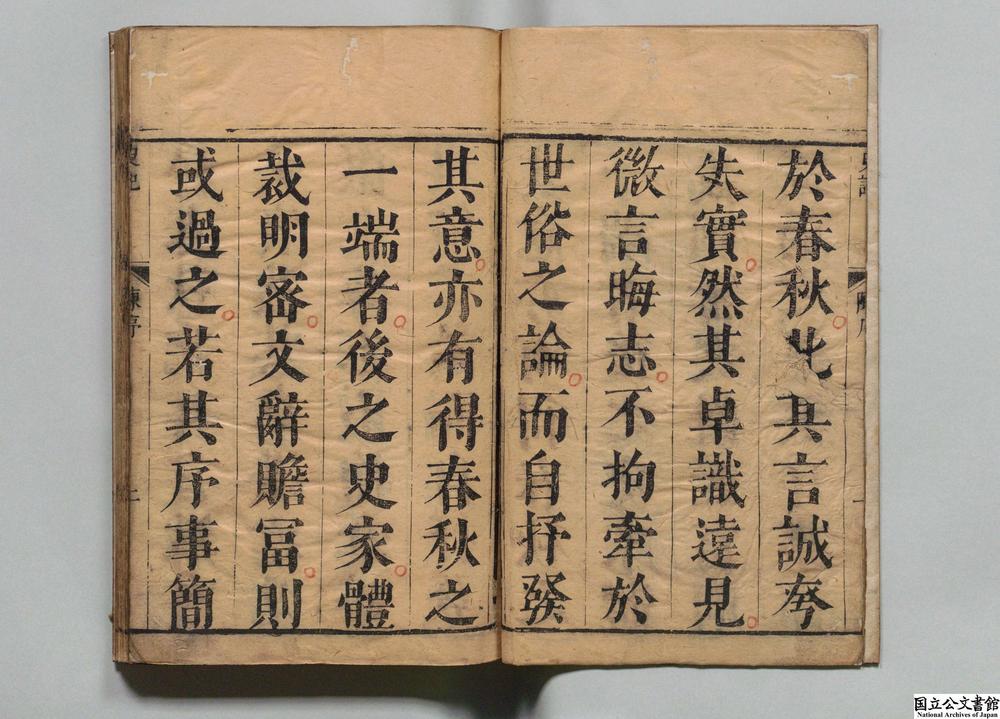 於春秋此其言誠夸
失實然其卓識遠見
微言晦志不拘牽於
世俗之論而自抒發
其意亦有得春秋之
一端者後之史家體
裁明密文辭贍冨則
或過之若其序事簡
國立公文書館
National Archives of Japan